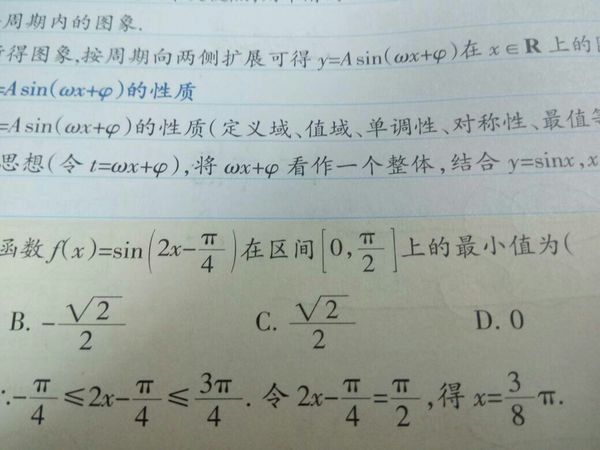 周期内的图象.
得图象,按周期向两侧扩展可得 y=Asin(ωx+φ)在 x∈R 上的
=Asin(ωx+φ)的性质
=Asin(ωx+φ)的性质(定义域、值域、单调性、对称性、最值等
思想(令 t=ωx+φ),将 ωx+φ 看作一个整体,结合 y=sinx,x
函数 f(x)=sin(2x-π/4)在区间[0,π/2]上的最小值为(
B. -√2/2 C. √2/2 D. 0
∴-π/4≤2x-π/4≤3π/4. 令 2x-π/4=π/2,得 x=3/8π.